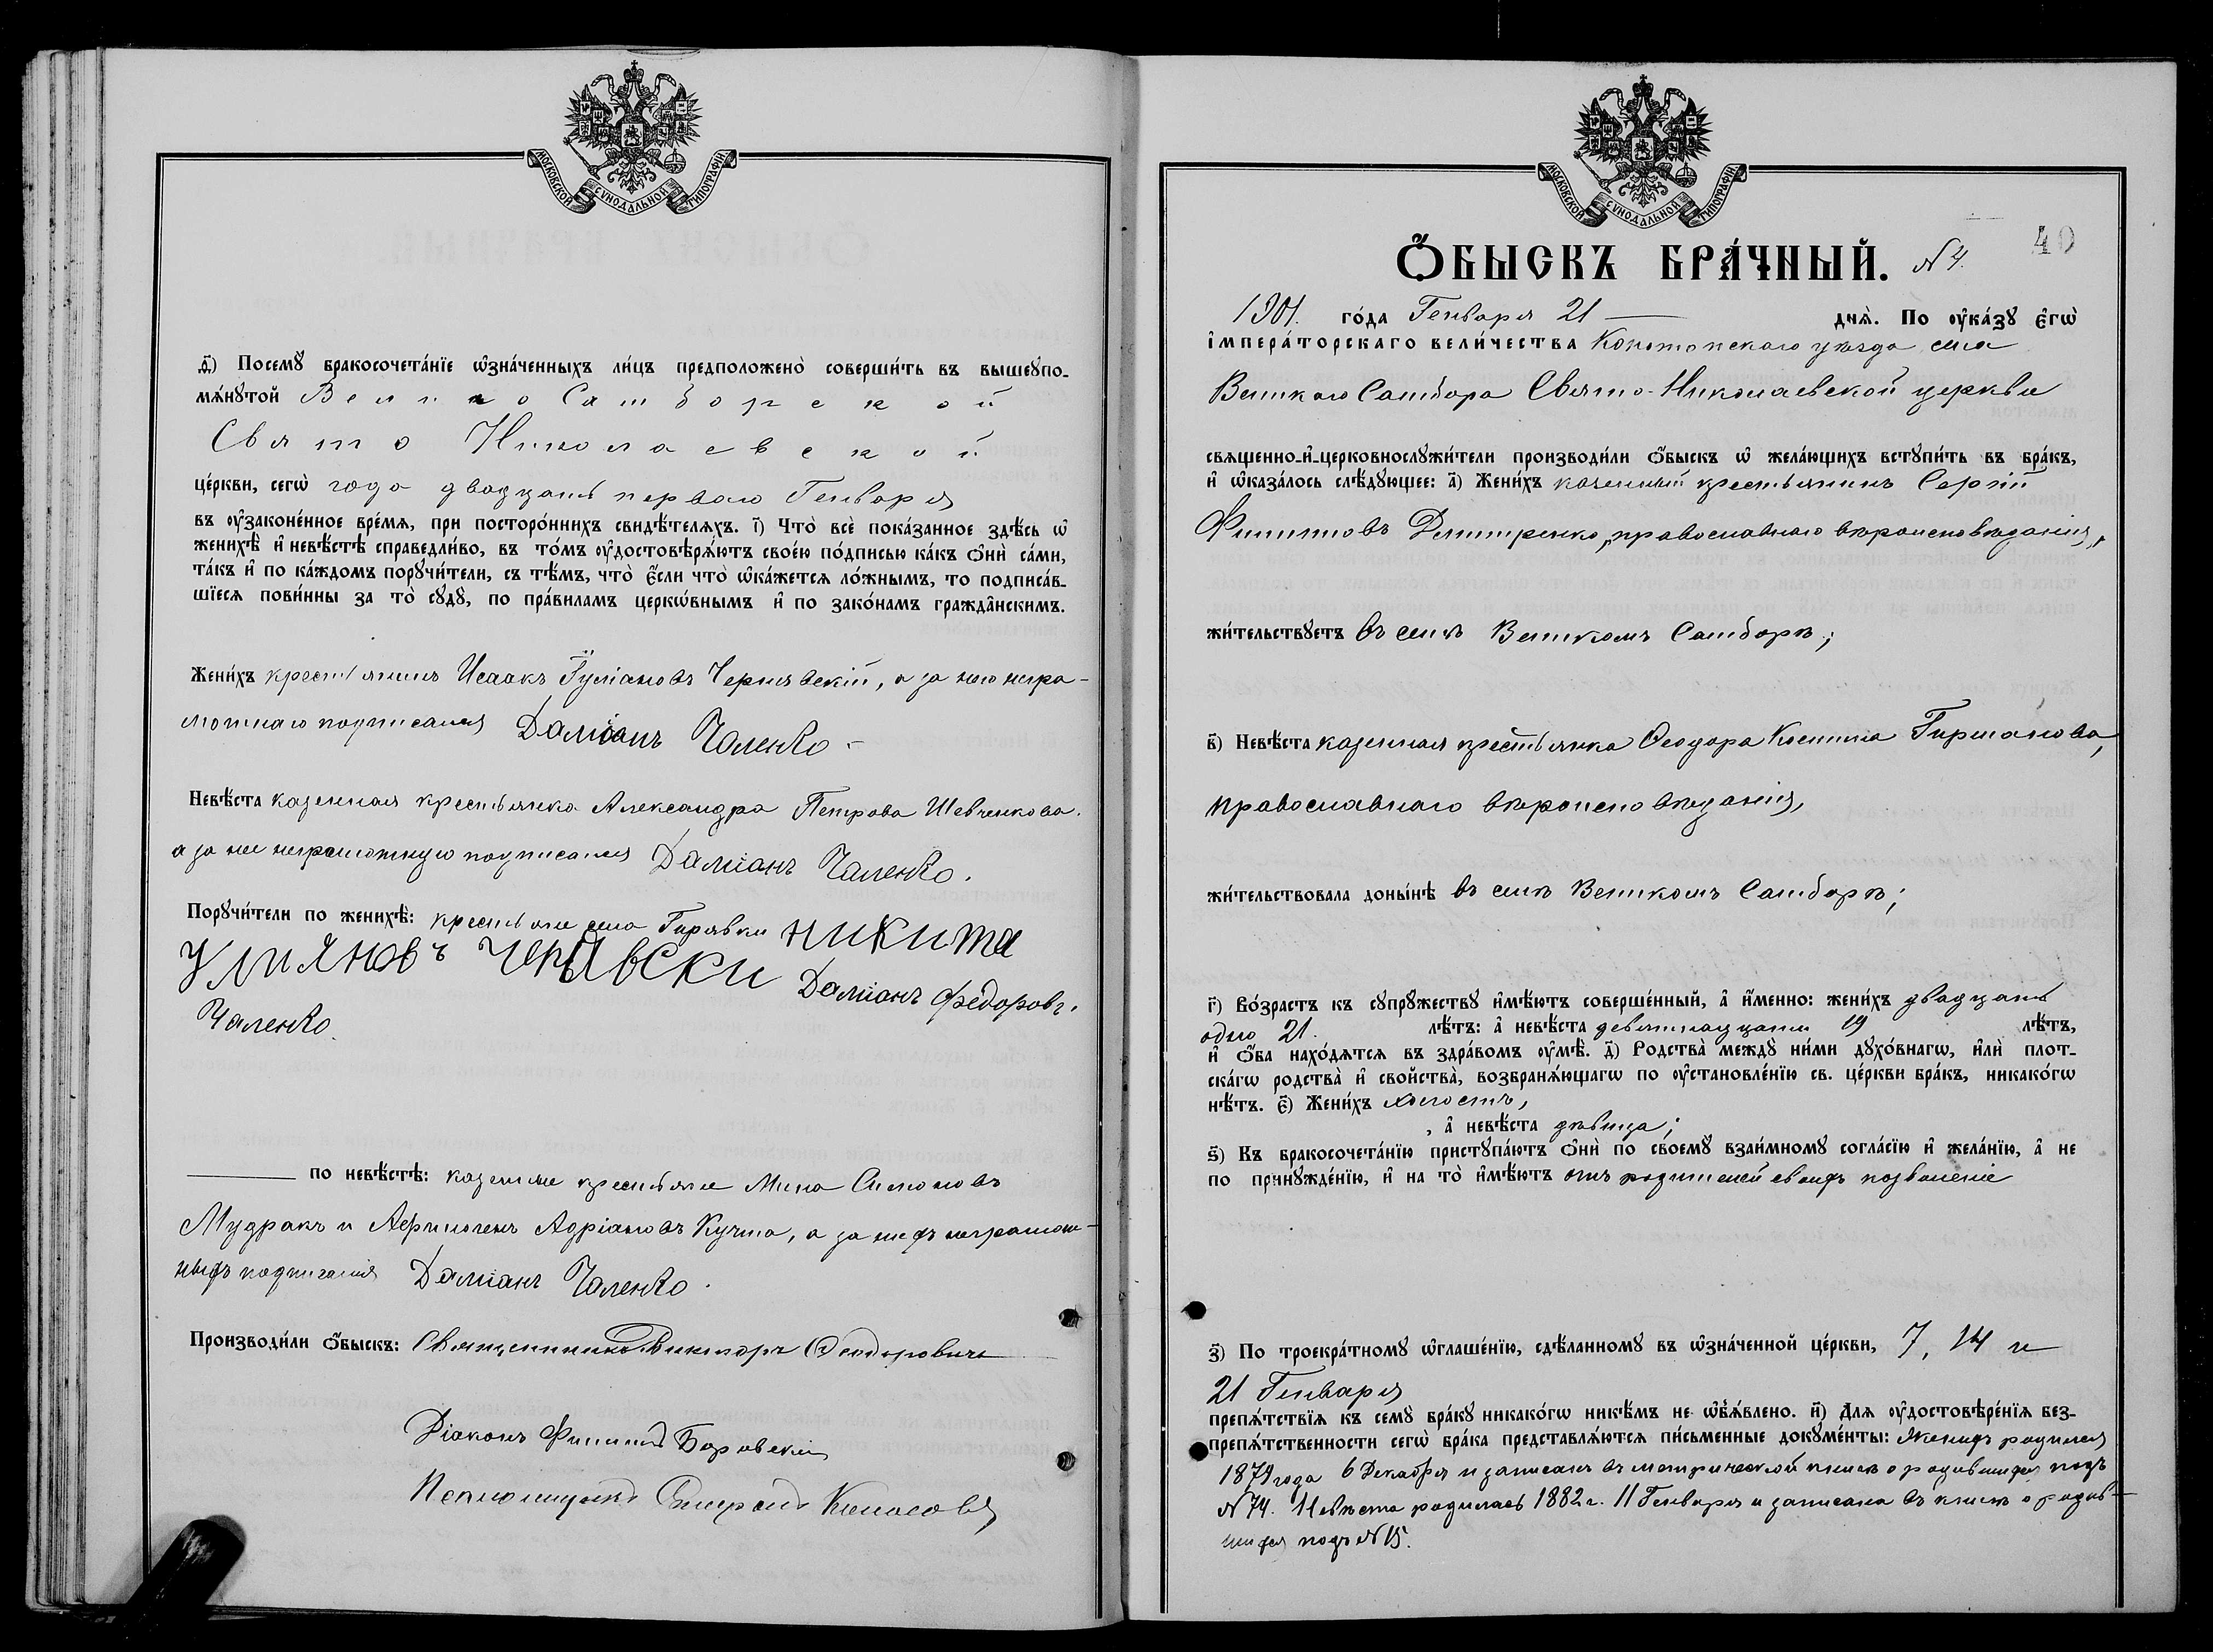 МОСКОВСКОЙ СѴНОДАЛЬНОЙ ТИПОГРАФІИ
ѳ҃) Посемꙋ̀ бракосочета́нїе ѡ҆зна́ченныхъ ли́цъ предположено̀ соверши́ть въ вышеꙋпо-
мѧ́нꙋтой Велико Самборской
Свято Николаевской
це́ркви, сегѡ̀ года двадцать перваго Генваря
въ ᲂу҆законе́нное вре́мѧ, при посторо́ннихъ свидѣ́телѧхъ. і҃) Что̀ всѐ пока́занное здѣ́сь ѡ҆
женихѣ̀ и҆ невѣ́стѣ справедли́во, въ то́мъ ᲂу҆достовѣрѧ́ютъ свое́ю по́дписью ка́къ ѻ҆нѝ са́ми,
та́къ и҆ по ка́ждомъ порꙋчи́тели, съ тѣ́мъ, что̀ є҆́сли что̀ ѡ҆ка́жется ло́жнымъ, то подписа́в-
шїеся пови́нны за то̀ сꙋдꙋ̀, по пра́виламъ церко́внымъ и҆ по зако́намъ гражда̂нскимъ.
Жени́хъ крестьянинъ Исаакъ Іуліановъ Чернявскій, а за него негра-
мотнаго подписался Даміанъ Чаленко -
Невѣ́ста казенная крестьянка Александра Петрова Шевченкова.
а за нее неграмотную подписался Даміанъ Чаленко.
Порꙋчи́тели по женихѣ̀: крестьяне села Гирявки никита
Улияновъ Чернявски Даміанъ Федоровъ.
Чаленко.
по невѣ́стѣ: казенные крестьяне Мина Симоновъ
Мудракъ и Афиногенъ Адріановъ Кучма, а за нихъ неграмот-
ныхъ подписался Даміанъ Чаленко.
Производи́ли ѻ҆́быскъ: Священникъ Викторъ Ѳеодоровичъ
Діаконъ Филиппъ Боровскій
Псаломщикъ Колосовъ
МОСКОВСКОЙ СѴНОДАЛЬНОЙ ТИПОГРАФІИ
Ѻ҆́БЫСКЪ БРА́ЧНЫЙ. N 4. 40
1901. го́да Генваря 21 — днѧ̀. По ᲂу҆ка́зꙋ є҆гѡ̀
і҆мпера́торскаго вели́чества Конотопскаго уѣзда села
Великаго Самбора Свято-Николаевской церкви
свѧщенно-и҆-церковнослꙋжи́тели производи́ли ѻ҆́быскъ ѡ҆ жела́ющихъ встꙋпи́ть въ бра́къ,
и҆ ѡ҆каза́лось слѣ́дꙋющее: а҃) Жени́хъ казенный крестьянинъ Сергій
Филиповъ Дмитренко, православнаго вѣроисповѣданія,
жи́тельствꙋетъ въ селѣ Великомъ Самборѣ;
в҃) Невѣ́ста казенная крестьянка Ѳеодора Космина Гирманова,
православнаго вѣроисповѣданія,
жи́тельствовала доны́нѣ въ селѣ Великомъ Самборѣ;
г҃) Во́зрастъ къ сꙋпрꙋ́жествꙋ и҆мѣ́ютъ соверше́нный, а҆̀ и҆́менно: жени́хъ двадцать
одно 21. лѣ́тъ: а҆̀ невѣ́ста девятнадцати 19 лѣ́тъ,
и҆ ѻ҆́ба нахо́дѧтсѧ въ здра́вомъ ᲂу҆мѣ̀. д҃) Родства̀ междꙋ̀ ни́ми дꙋхо́внагѡ, и҆лѝ плот-
ска́гѡ родства̀ и҆ свойства̀, возбранѧ́ющагѡ по ᲂу҆становле́нїю св. це́ркви бра́къ, никако́гѡ
нѣ́тъ. є҃) Жени́хъ холостъ,
, а҆̀ невѣ́ста дѣвица;
ѕ҃) Къ бракосочета́нїю пристꙋпа́ютъ ѻ҆нѝ по своемꙋ̀ взаи́мномꙋ согла́сїю и҆ жела́нїю, а҆̀ не
по принꙋжде́нїю, и҆ на то̀ и҆мѣ́ютъ отъ родителей своихъ позволеніе
з҃) По троекра́тномꙋ ѡ҆глаше́нїю, сдѣ́ланномꙋ въ ѡ҆зна́ченной це́ркви, 7, 14 и
21 Генваря
препѧ́тствїѧ къ семꙋ̀ бра́кꙋ никако́гѡ никѣ́мъ не ѡ҆бъѧ́влено. и҃) Длѧ ᲂу҆достовѣре́нїѧ без-
препѧ́тственности сегѡ̀ бра́ка представлѧ́ются пи́сьменные докꙋме́нты: Женихъ родился
1879 года 6 Декабря и записанъ въ метрической книгѣ о родившихся подъ
N 74. Невѣста родилась 1882 г. 11 Генваря и записана въ книгѣ о родив-
шихся подъ N 15.